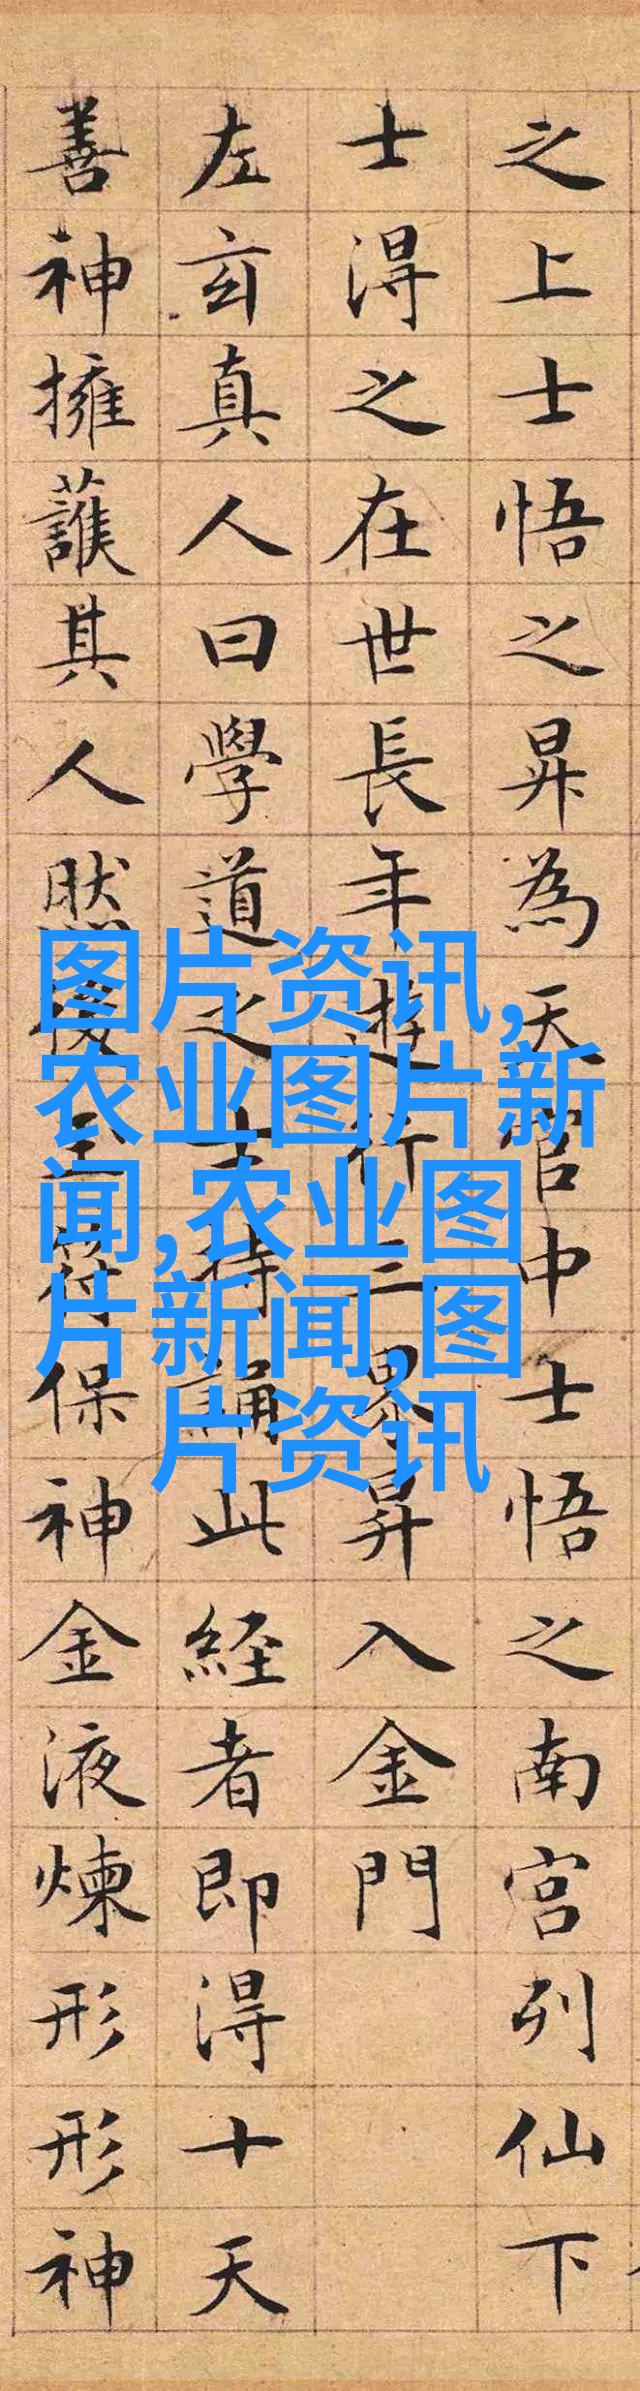 之上士悟之昇為天官中士悟之南宮列仙下
士淂之在世長年遊行三界昇入金門
左玄真人曰學道之士持誦此經者即淂十天
善神擁護其人然後玉符保神金液煉形形神
图片资讯,
农业图片新
闻,农业图
片新闻,图
片资讯